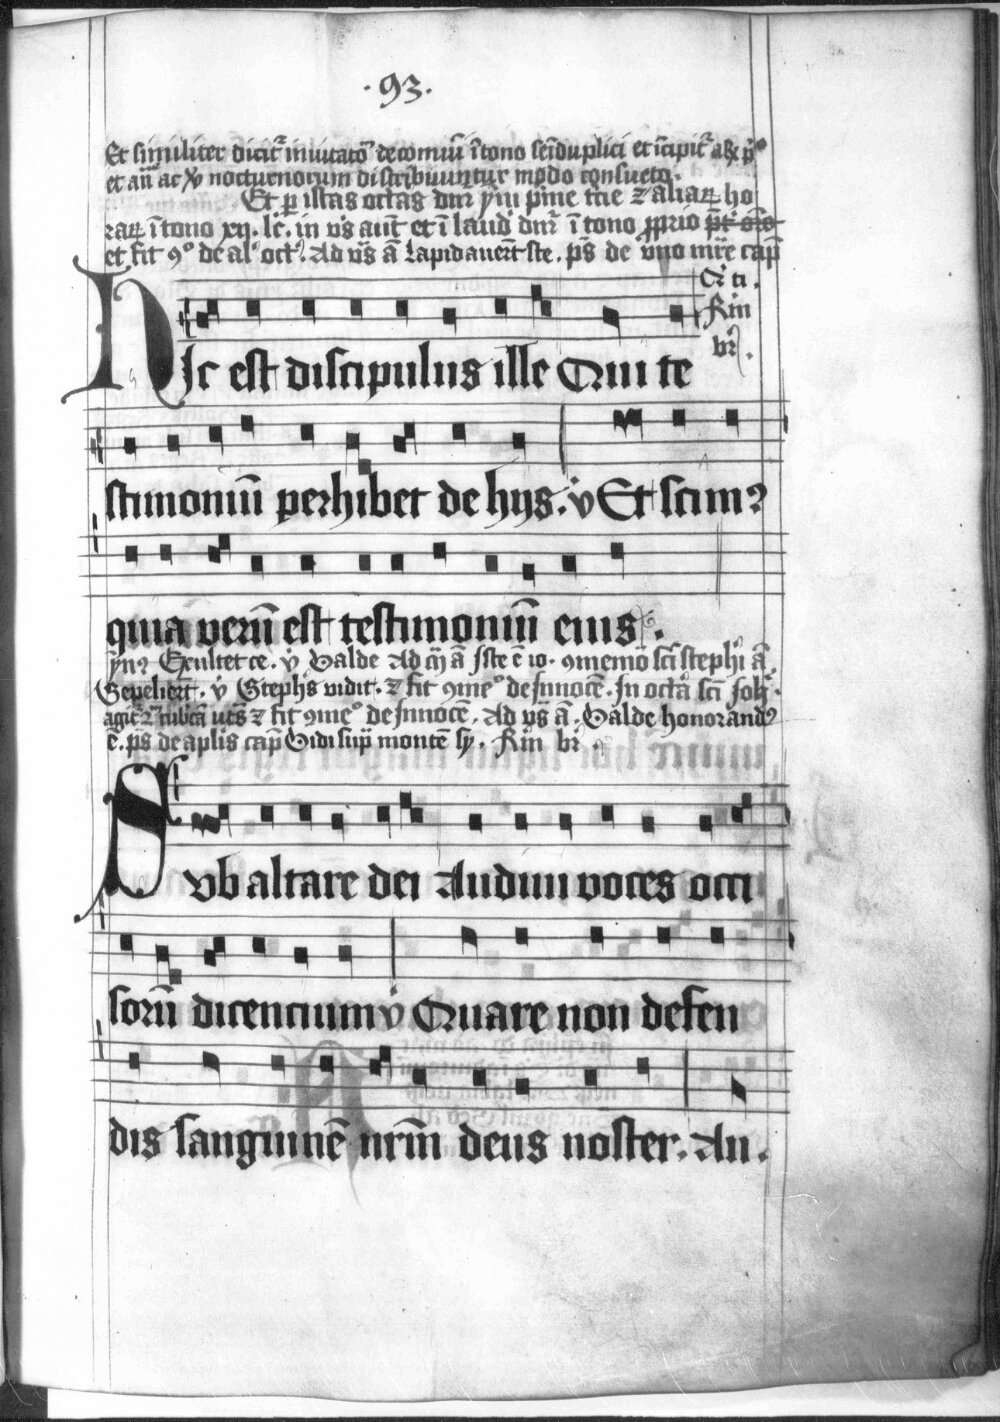 .93.
Et similiter dicit͛ inuitato͛ de com̄ui ī tono sēiduplici et īcipit͛
et añ ac xv nocturnorum distribuuntur modo consueto.
Et ꝑ istas octas dn̄r
raꝝ ī tono xij. lc̄. in vs̄ aut̄ et ī laud dn̄r ī tono
et fit ꝯ° de al' oct'. Ad vs̄ ā Lapidauerūt ste. ps̄ de vno mr̄e cap̄
Rīn
br̄.
HIc est discipulus ille Qui te
stimoniū perhibet de hijs. v̇ Et scimꝰ
quia verū est testimoniū eius.
ynꝰ Exultet ce. v̇ Valde Ad ā Iste ē io. ꝯmemō sc̄i stephi ā
Sepelierūt. v̇ Steph̄s vidit. ⁊ fit ꝯme° de Innocē. In octa sc̄i Joh̄.
⁊ fit ꝯme° de Innocē. Ad vs̄ ā. Valde honorandꝰ
ē. ps̄ de aplis cap̄ Vidi sup̄ montē sy. Rīn br̄
SVb altare dei Audiui voces occi
sorū dicencium v̇ Quare non defen
dis sanguinē nr̄m deus noster. Au.